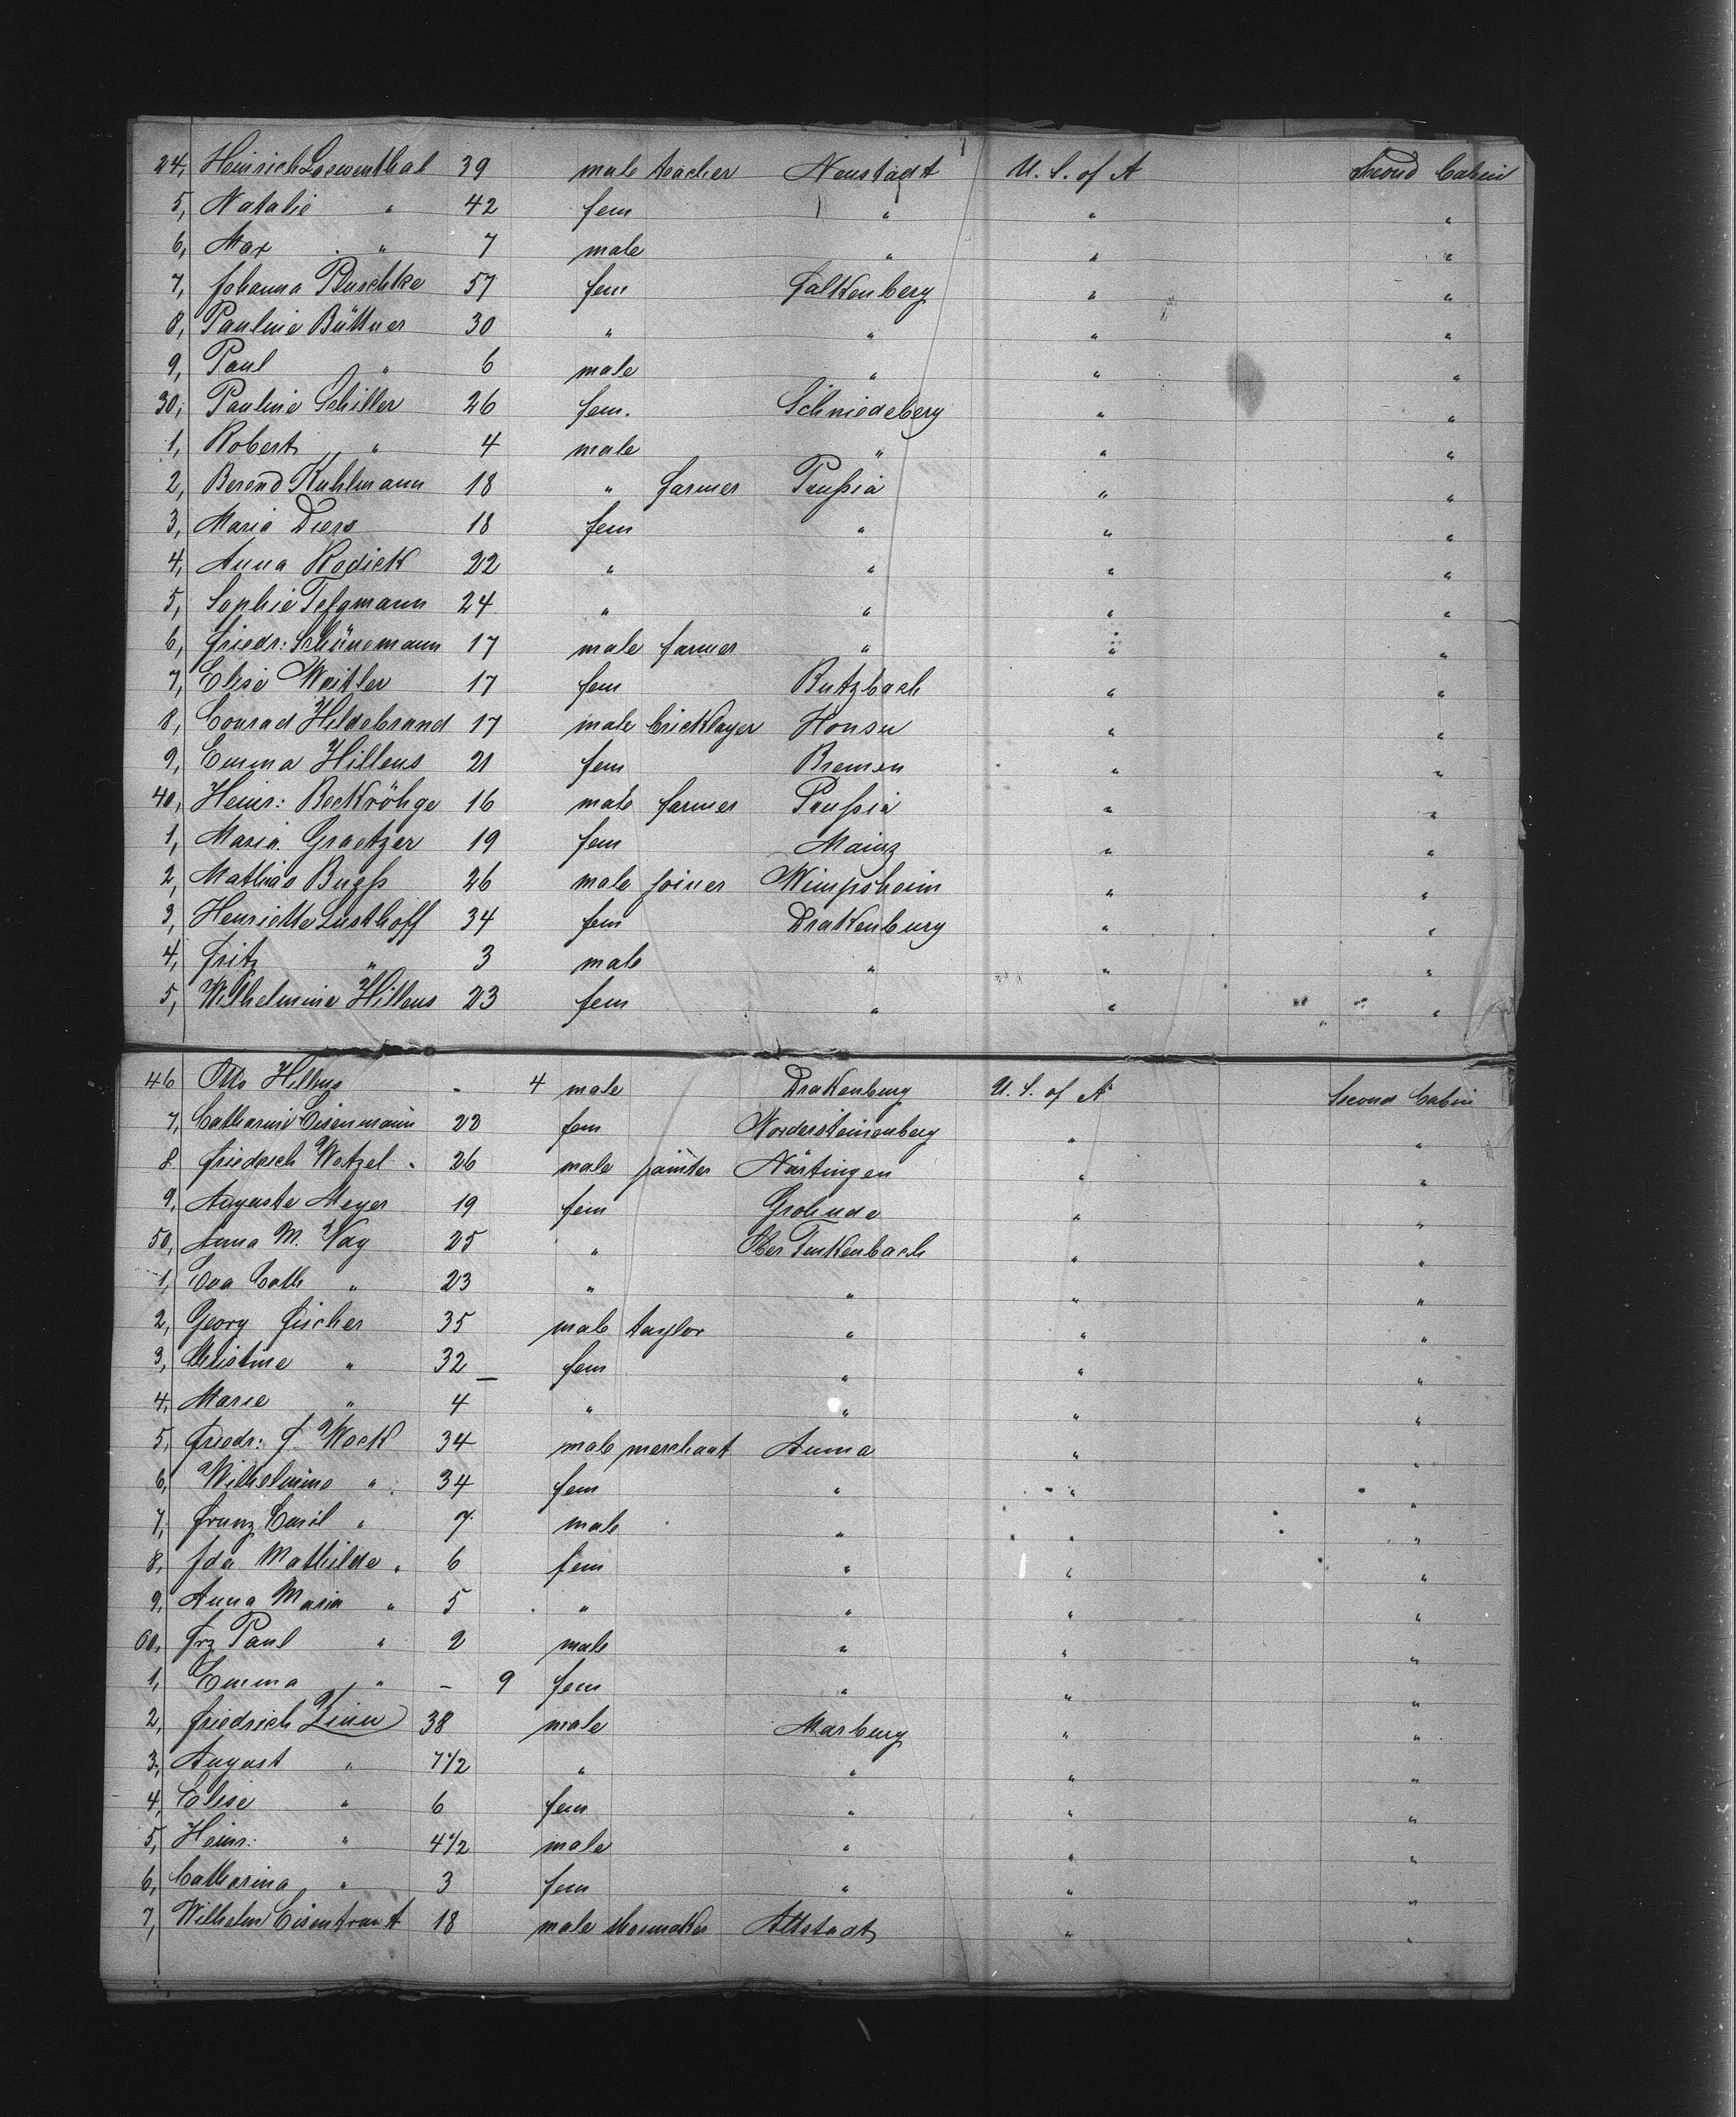 24, Heinrich Loewenthal 39 male teacher Neustadt U. S. of A Second Cabin
5, Natalie " 42 fem " " "
6, Max " 7 male " " "
7, Johanna Puschke 57 fem Falkenberg " "
8, Pauline Büttner 30 " " " "
9, Paul " 6 male " " "
30, Pauline Schiller 26 fem. Schmiedeberg " "
1, Robert " 4 male " " "
2, Berend Kuhlmann 18 " farmer Prußia " "
3, Maria Diers 18 fem " " "
4, Anna Rodiek 22 " " " "
5, Sophie 24 " " " "
6, Friedr: Schünemann 17 male farmer " " "
7, Elise Weitler 17 fem Butzbach " "
8, Conrad Hildebrand 17 male bricklayer " "
9, Emma Hillens 21 fem Bremen " "
40, Heinr: Beckröhge 16 male farmer Prußia " "
1, Maria Graetzer 19 fem Mainz " "
2, Mathias 26 male joiner Wimpsheim " "
3, Henriette Lusthoff 34 fem Drakenburg " "
4, Fritz " 3 male " " "
5, Wilhelmine Hillens 23 fem " " "
46 Otto Hillens - 4 male Drakenburg U. S. of A Second Cabin
7, Catharine Eisenmann 23 fem Vordersteinenberg " "
8 Friedrich Wetzel 26 male painter Nürtingen " "
9, Auguste Meyer 19 fem Grohnde " "
50, Anna M. Vay 25 " Ober Finkenbach " "
1, Eva Cath " 23 " " " "
2, Georg Fischer 35 male taylor " " "
3, Christine " 32 fem " " "
4, Marie " 4 " " " "
5, Friedr: F. Wock 34 male merchant Auma " "
6, Wilhelmine " 34 fem " " "
7, Franz Carl " 7 male " " "
8, Ida Mathilde " 6 fem " " "
9, Anna Maria " 5 " " " "
60, Frz Paul " 2 male " " "
1, Emma " - 9 fem " " "
2, Friedrich Zinn 38 male Marburg " "
3, August " 7 1/2 " " " "
4, Elise " 6 fem " " "
5, Heinr: " 4 1/2 male " " "
6, Catharina " 3 fem " " "
7, Wilhelm Eisentraut 18 male shoemaker Altstadt " "